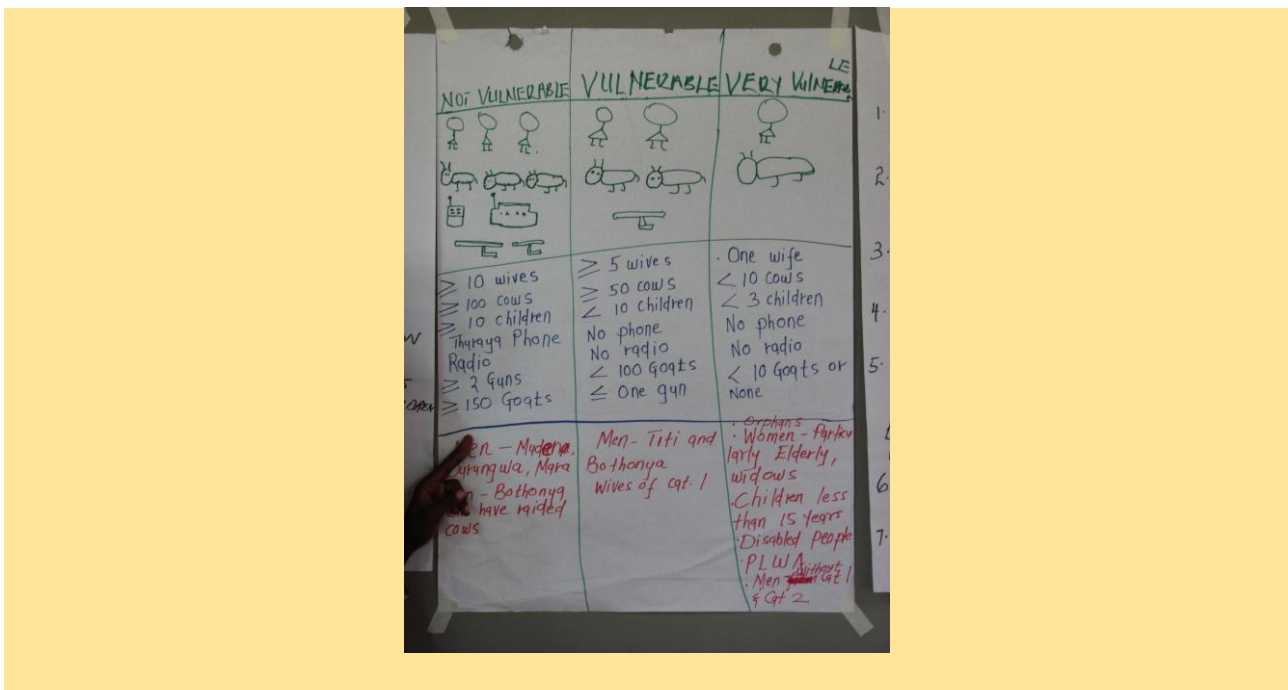 NOT VULNERABLE
VULNERABLE
VERY VULNERAB
LE
≥ 10 wives
≥ 100 cows
≥ 10 children
Thuraya Phone
Radio
≥ 2 Guns
≥ 150 Goats
≥ 5 wives
≥ 50 cows
< 10 children
No phone
No radio
< 100 Goats
≤ One gun
· One wife
< 10 cows
< 3 children
No phone
No radio
< 10 Goats or
None
Men –
Mara
– Bothonya
have raided
cows
Men – Titi and
Bothonya
Wives of cat. 1
· Orphans
· Women – Particu
larly Elderly,
widows
· Children less
than 15 years
· Disabled people
· PLWA
· Men without Cat 1
& Cat 2
1.
2.
3.
4.
5.
6
7.